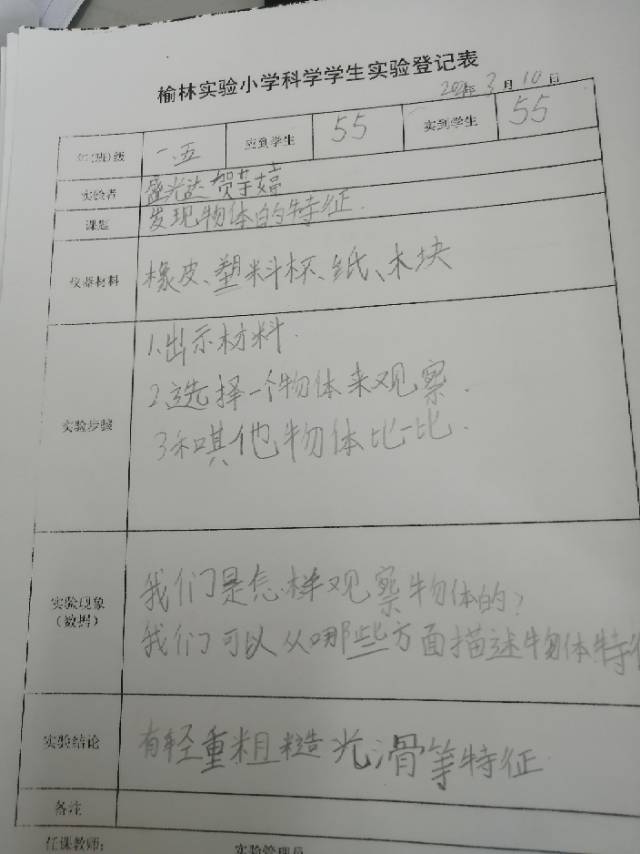 榆林实验小学科学学生实验登记表
年 3 月 10 日
年(班)级 一.五 应到学生 55 实到学生 55
实验者 盛光达 贺芋嬉
课题 发现物体的特征.
仪器材料 橡皮、塑料杯、纸、木块
1.出示材料.
2.选择一个物体来观察.
实验步骤
3和唭他物体比一比.
我们是怎样观察物体的?
实验现象
(数据)
我们可以从哪些方面描述物体特征
实验结论 有轻重粗糙光滑等特征
备注
任课教师: 实验管理员